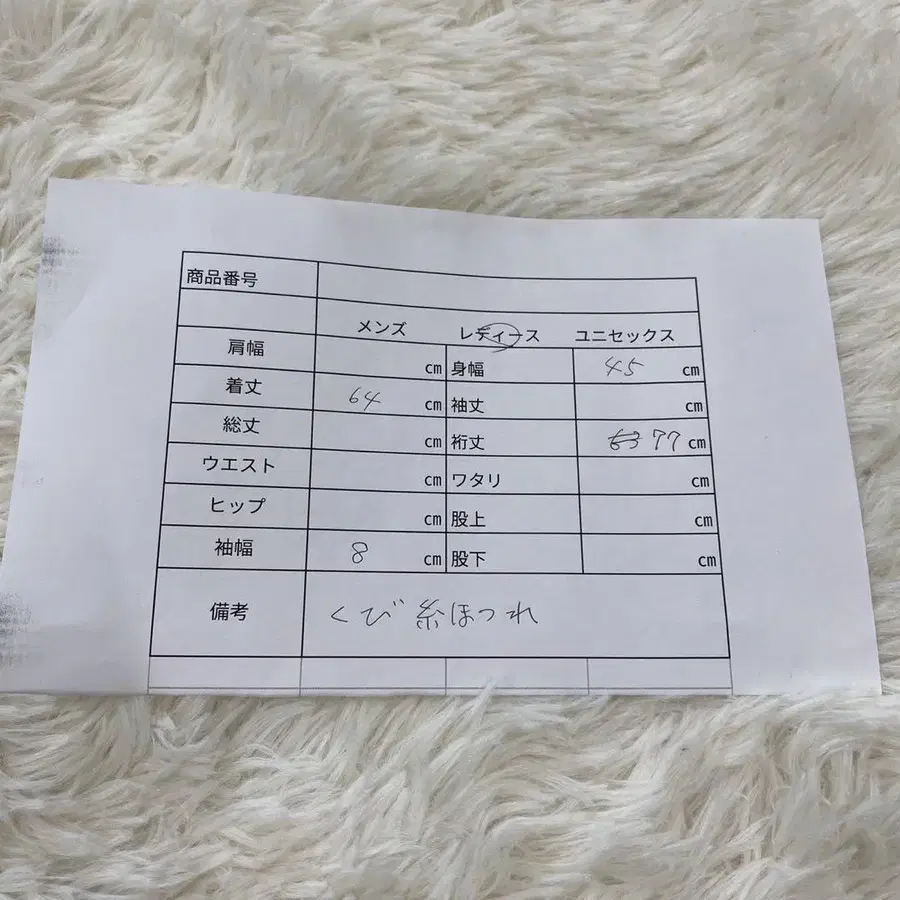 商品番号
メンズ レディース ユニセックス
肩幅 cm 身幅 45 cm
着丈 64 cm 袖丈 cm
総丈 cm 裄丈 77 cm
ウエスト cm ワタリ cm
ヒップ cm 股上 cm
袖幅 8 cm 股下 cm
備考 くび糸ほつれ